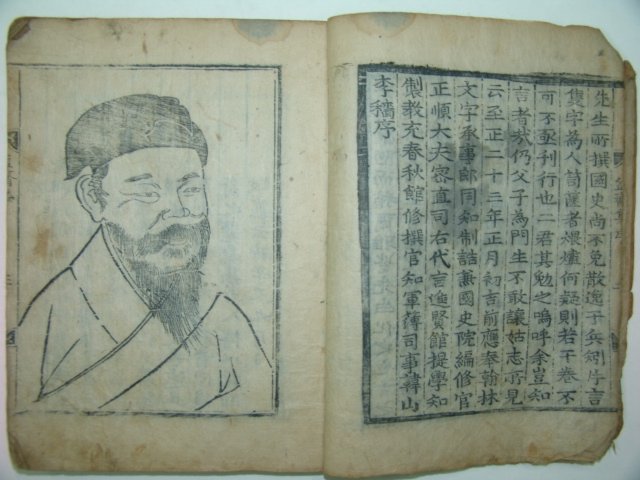 先生所撰國史尚不免散逸於兵矧片言
隻字為人笥篋者煨燼何疑則若干卷不
可不亟刊行也二君其勉之嗚呼余豈知
言者㢤仍父子為門生不敢讓姑志所見
云至正二十三年正月初吉前應奉翰林
文字承事郎同知制誥兼國史院編修官
正順大夫密直司右代言進賢館提學知
製教充春秋館修撰官知軍簿司事韓山
李穡序